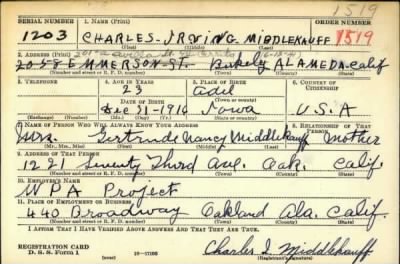 1519
SERIAL NUMBER 1. NAME (Print) ORDER NUMBER
1203 CHARLES - IRVING MIDDLEKAUFF 1519
(First) (Middle) (Last)
2. ADDRESS (Print)
2058 EMMERSON-ST. Bukely ALAMEDA-Calif
(Number and street or R. F. D. number) (Town) (County) (State)
3. TELEPHONE 4. AGE IN YEARS 5. PLACE OF BIRTH 6. COUNTRY OF CITIZENSHIP
23 Adel
DATE OF BIRTH (Town or county)
Dec 31-1916 Iowa U.S.A
(Exchange) (Number) (Mo.) (Day) (Yr.) (State or country)
7. NAME OF PERSON WHO WILL ALWAYS KNOW YOUR ADDRESS 8. RELATIONSHIP OF THAT PERSON
Mrs. Gertrude Nancy Middlekauff Mother
(Mr., Mrs., Miss) (First) (Middle) (Last)
9. ADDRESS OF THAT PERSON
1221 Seventy Third Ave. Oak. Calif.
(Number and street or R. F. D. number) (Town) (County) (State)
10. EMPLOYER'S NAME
WPA Project
11. PLACE OF EMPLOYMENT OR BUSINESS
440 Broadway Oakland Ala. Calif.
(Number and street or R. F. D. number) (Town) (County) (State)
I AFFIRM THAT I HAVE VERIFIED ABOVE ANSWERS AND THAT THEY ARE TRUE.
REGISTRATION CARD
D. S. S. Form 1 16-17105 Charles I. Middlekauff
(Registrant's signature)